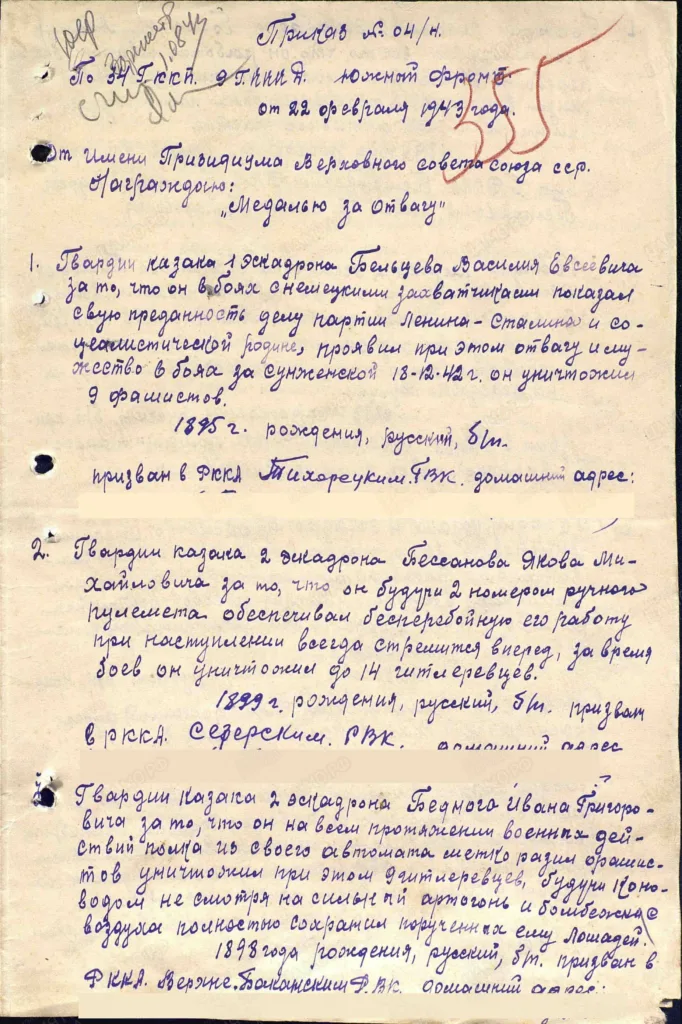 Приказ № 04/н.
По 34 Гккп. 9 Гккка. Южный фронт
от 22 февраля 1943 года.
355
От имени Призидиума Верховного совета союза сср.
Награждаю:
"Медалью за отвагу"
1. Гвардии казака 1 эскадрона Бельцева Василия Евсеевича
за то, что он в боях с немецкими захватчиками показал
свую преданность делу партии Ленина-Сталина и со-
цеалистической родине, проявил при этом отвагу и му-
жество в боях за Сунженской 18-12-42 г. он уничтожил
9 фашистов.
1895 г. рождения, русский, б/п.
призван в РККА Тихорецким. ГВК. домашний адрес:
2. Гвардии казака 2 эскадрона Бессанова Якова Ми-
хайловича за то, что он будучи 2 номером ручного
пулемета обеспечивал бесперебойную его работу
при наступлении всегда стремится вперед, за время
боев он уничтожил до 14 гитлеревцев.
1899 г. рождения, русский, б/п. призван
в РККА. Северским. РВК. домашний адрес
Гвардии казака 2 эскадрона Бедного Ивана Григоро-
вича за то, что он на всем протяжении военных дей-
ствий полка из своего автомата метко разил фашис-
тов уничтожил при этом 9 гитлеревцев, будучи коно-
водом не смотря на сильный артогонь и бомбежка с
воздуха полностью сохранил порученных ему лошадей.
1898 года рождения, русский, б/п. призван в
РККА. Верхне. Баканским Р.ВК. домашний адрес: